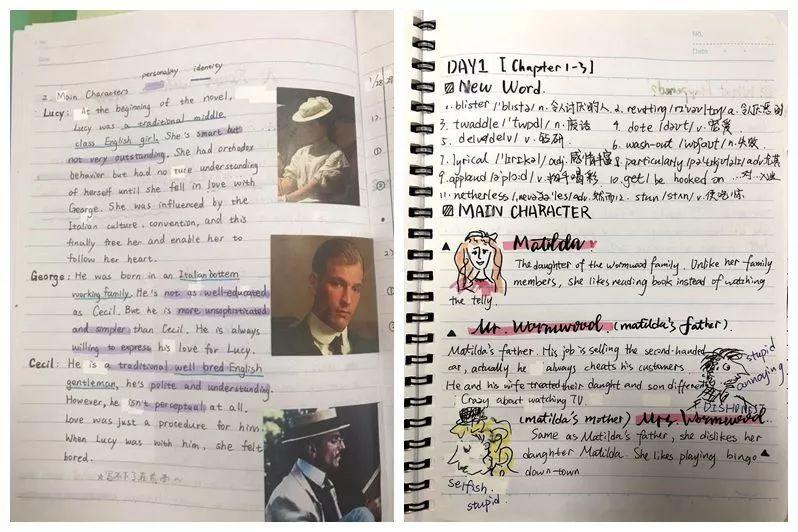 personality identity
2. Main Characters
Lucy: At the beginning of the novel,
Lucy was a traditional middle
class English girl. She's smart but
not very outstanding. She had orthodox
behavior but had no ture understanding
of herself until she fell in love with
George. She was influenced by the
Italian culture, convention, and this
finally free her and enable her to
follow her heart.
George: He was born in an Italian bottem
working family. He's not as well-educated
as Cecil. But he is more unsophisticated
and simpler than Cecil. He is always
willing to express his love for Lucy.
Cecil: He is a traditional well bred English
gentleman, he's polite and understanding.
However, he isn't perceptual at all.
Love was just a procedure for him.
When Lucy was with him, she felt
bored.
NO.
Date
DAY1 [Chapter 1-3]
New Word.
1. blister /'blistə/ n. 令人讨厌的人 2. revolting a.
3. twaddle /'twɒdl/ n. 废话 4. dote /dəʊt/ v. 宠爱
5. delve /delv/ v. 钻研 6. wash-out n. 失败
7. lyrical /'lɪrɪkəl/ adj. 感情丰富 8. particularly adv. 尤其
9. applaud v. 拍手喝彩 10. get / be hooked on ...对...入迷
11. netherless adv. 然而 12. stun /stʌn/ v. 使吃惊
MAIN CHARACTER
▲ Matilda
The daughter of the Wormwood family. Unlike her family
members, she likes reading book instead of watching
the telly.
▲ Mr. Wormwood (matilda's father).
Matilda's father. His job is selling the second-handed
car, actually he always cheats his customers.
He and his wife treated their daught and son different
Crazy about watching TV.
stupid
annoying
DISHONEST
(matilda's mother) Mrs. Wormwood
Same as Matilda's father, she dislikes her
daughter Matilda. She likes playing bingo ▲
down-town
selfish.
stupid.